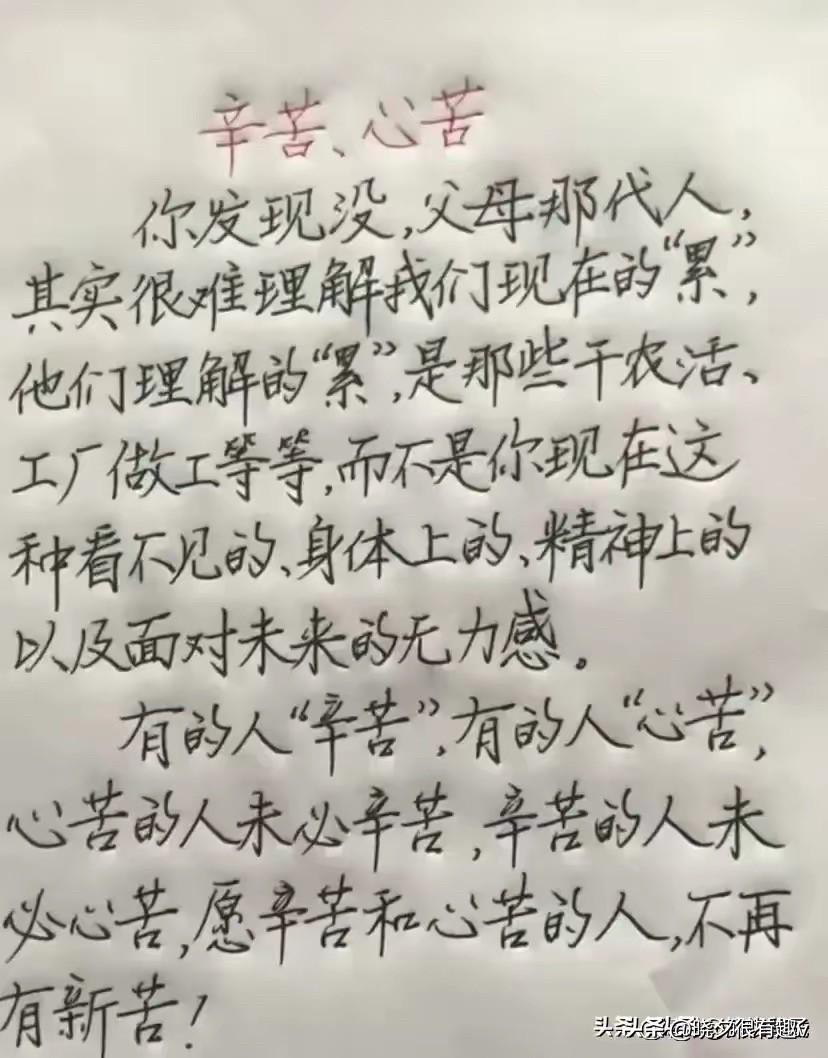 辛苦、心苦
你发现没,父母那代人,
其实很难理解我们现在的“累”,
他们理解的“累”,是那些干农活、
工厂做工等等,而不是你现在这
种看不见的、身体上的、精神上的
以及面对未来的无力感。
有的人“辛苦”,有的人“心苦”,
心苦的人未必辛苦,辛苦的人未
必心苦,愿辛苦和心苦的人,不再
有新苦!
头条